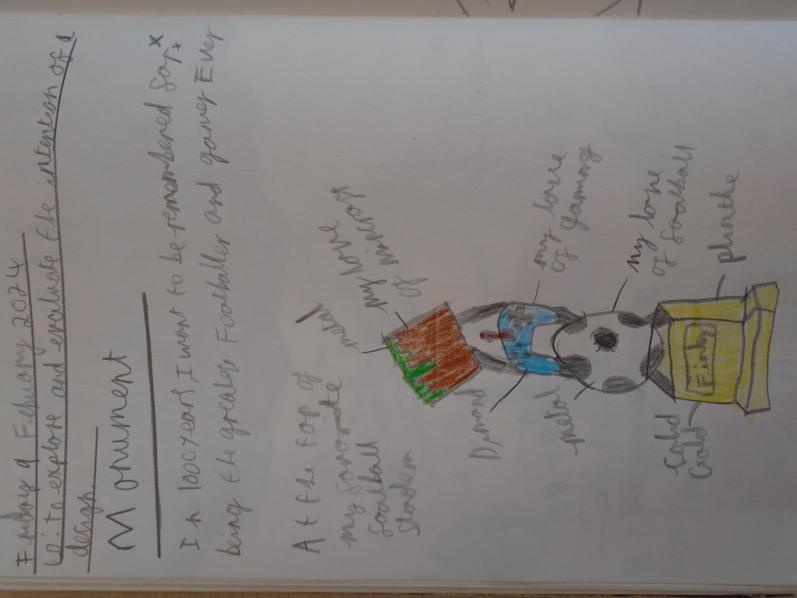 Friday 9 February 2024
Lc: to explore and evaluate the intention of a
design.
Monument
In 1000 years, I want to be remembered for
being the greates Footballer and gamer Ever
At the top of
my favourite
football
Stadem
metal
my love
of mincraft
Dimond
my love
of gaming
metal
my love
of football
Solid
Gold
plinthe
Finley